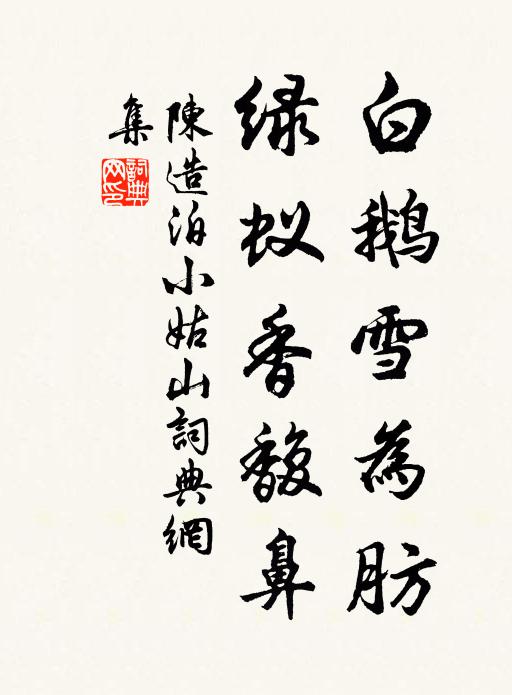 白鹅雪為肪
绿蚁香馥鼻
陳造泊小姑山詞典網
集
詞典网印